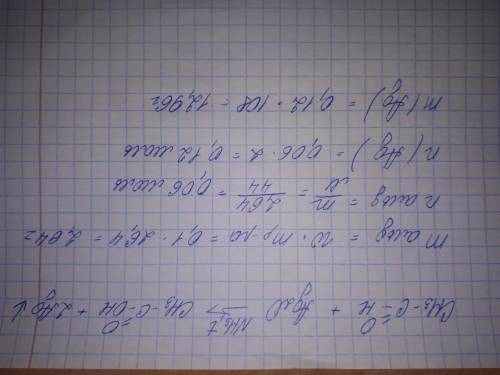 CH₃-C=O-H + Ag₂O NH₃,t → CH₃-C=O-OH + 2Ag↓
m альд = w · m р-ра = 0,1 · 26,4 = 2,64 г
n альд = m/M = 2,64/44 = 0,06 моль
n(Ag) = 0,06 · 2 = 0,12 моль
m(Ag) = 0,12 · 108 = 12,96 г